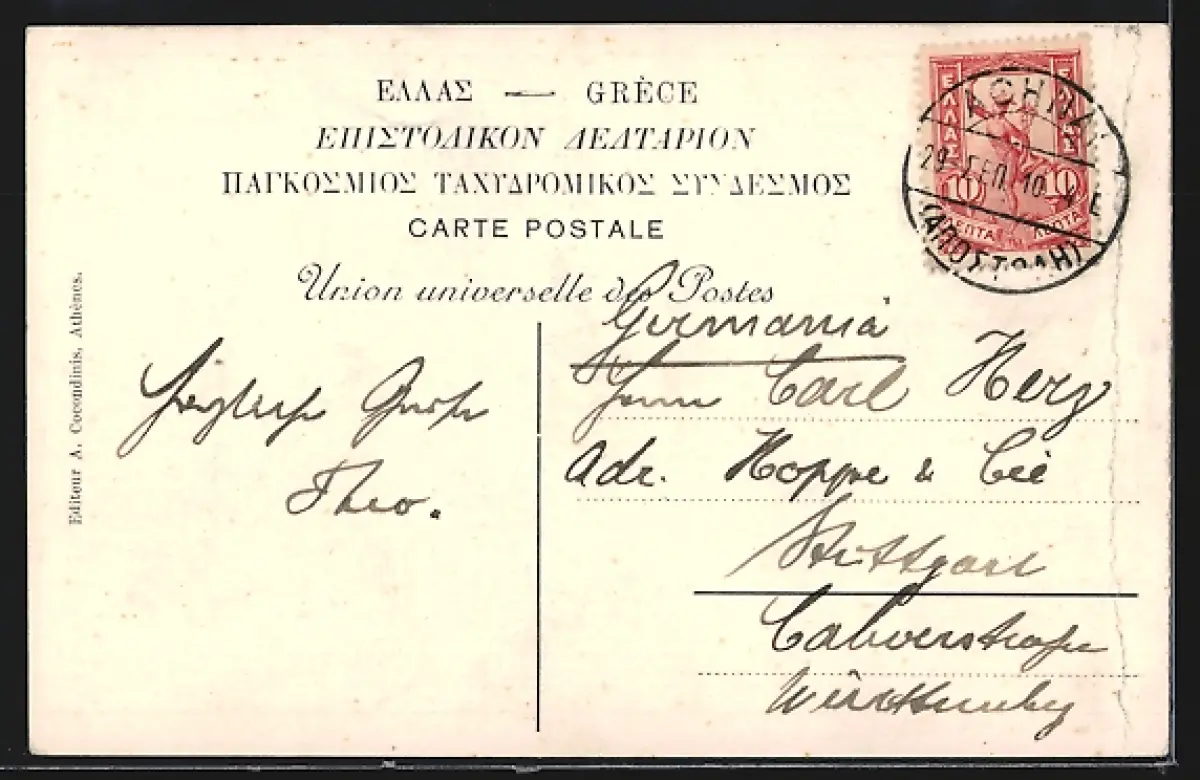 ΕΛΛΑΣ — GRÈCE
ΕΠΙΣΤΟΛΙΚΟΝ ΔΕΛΤΑΡΙΟΝ
ΠΑΓΚΟΣΜΙΟΣ ΤΑΧΥΔΡΟΜΙΚΟΣ ΣΥΝΔΕΣΜΟΣ
CARTE POSTALE
Union universelle des Postes
ΕΛΛΑΣ
ΕΛΛΑΣ
10 10
ΛΕΠΤΑ ΛΕΠΤΑ
ΑΘΗΝΑΙ
29 ΣΕΠ. 10
(ΑΠΟΣΤΟΛΗ)
Editeur A. Cocondinis, Athènes.
Herzlich Gruß
Theo.
Germania
Herrn Carl Herz
Adr. Hoppe & Cie
Stuttgart
Calwerstraße
Württemberg